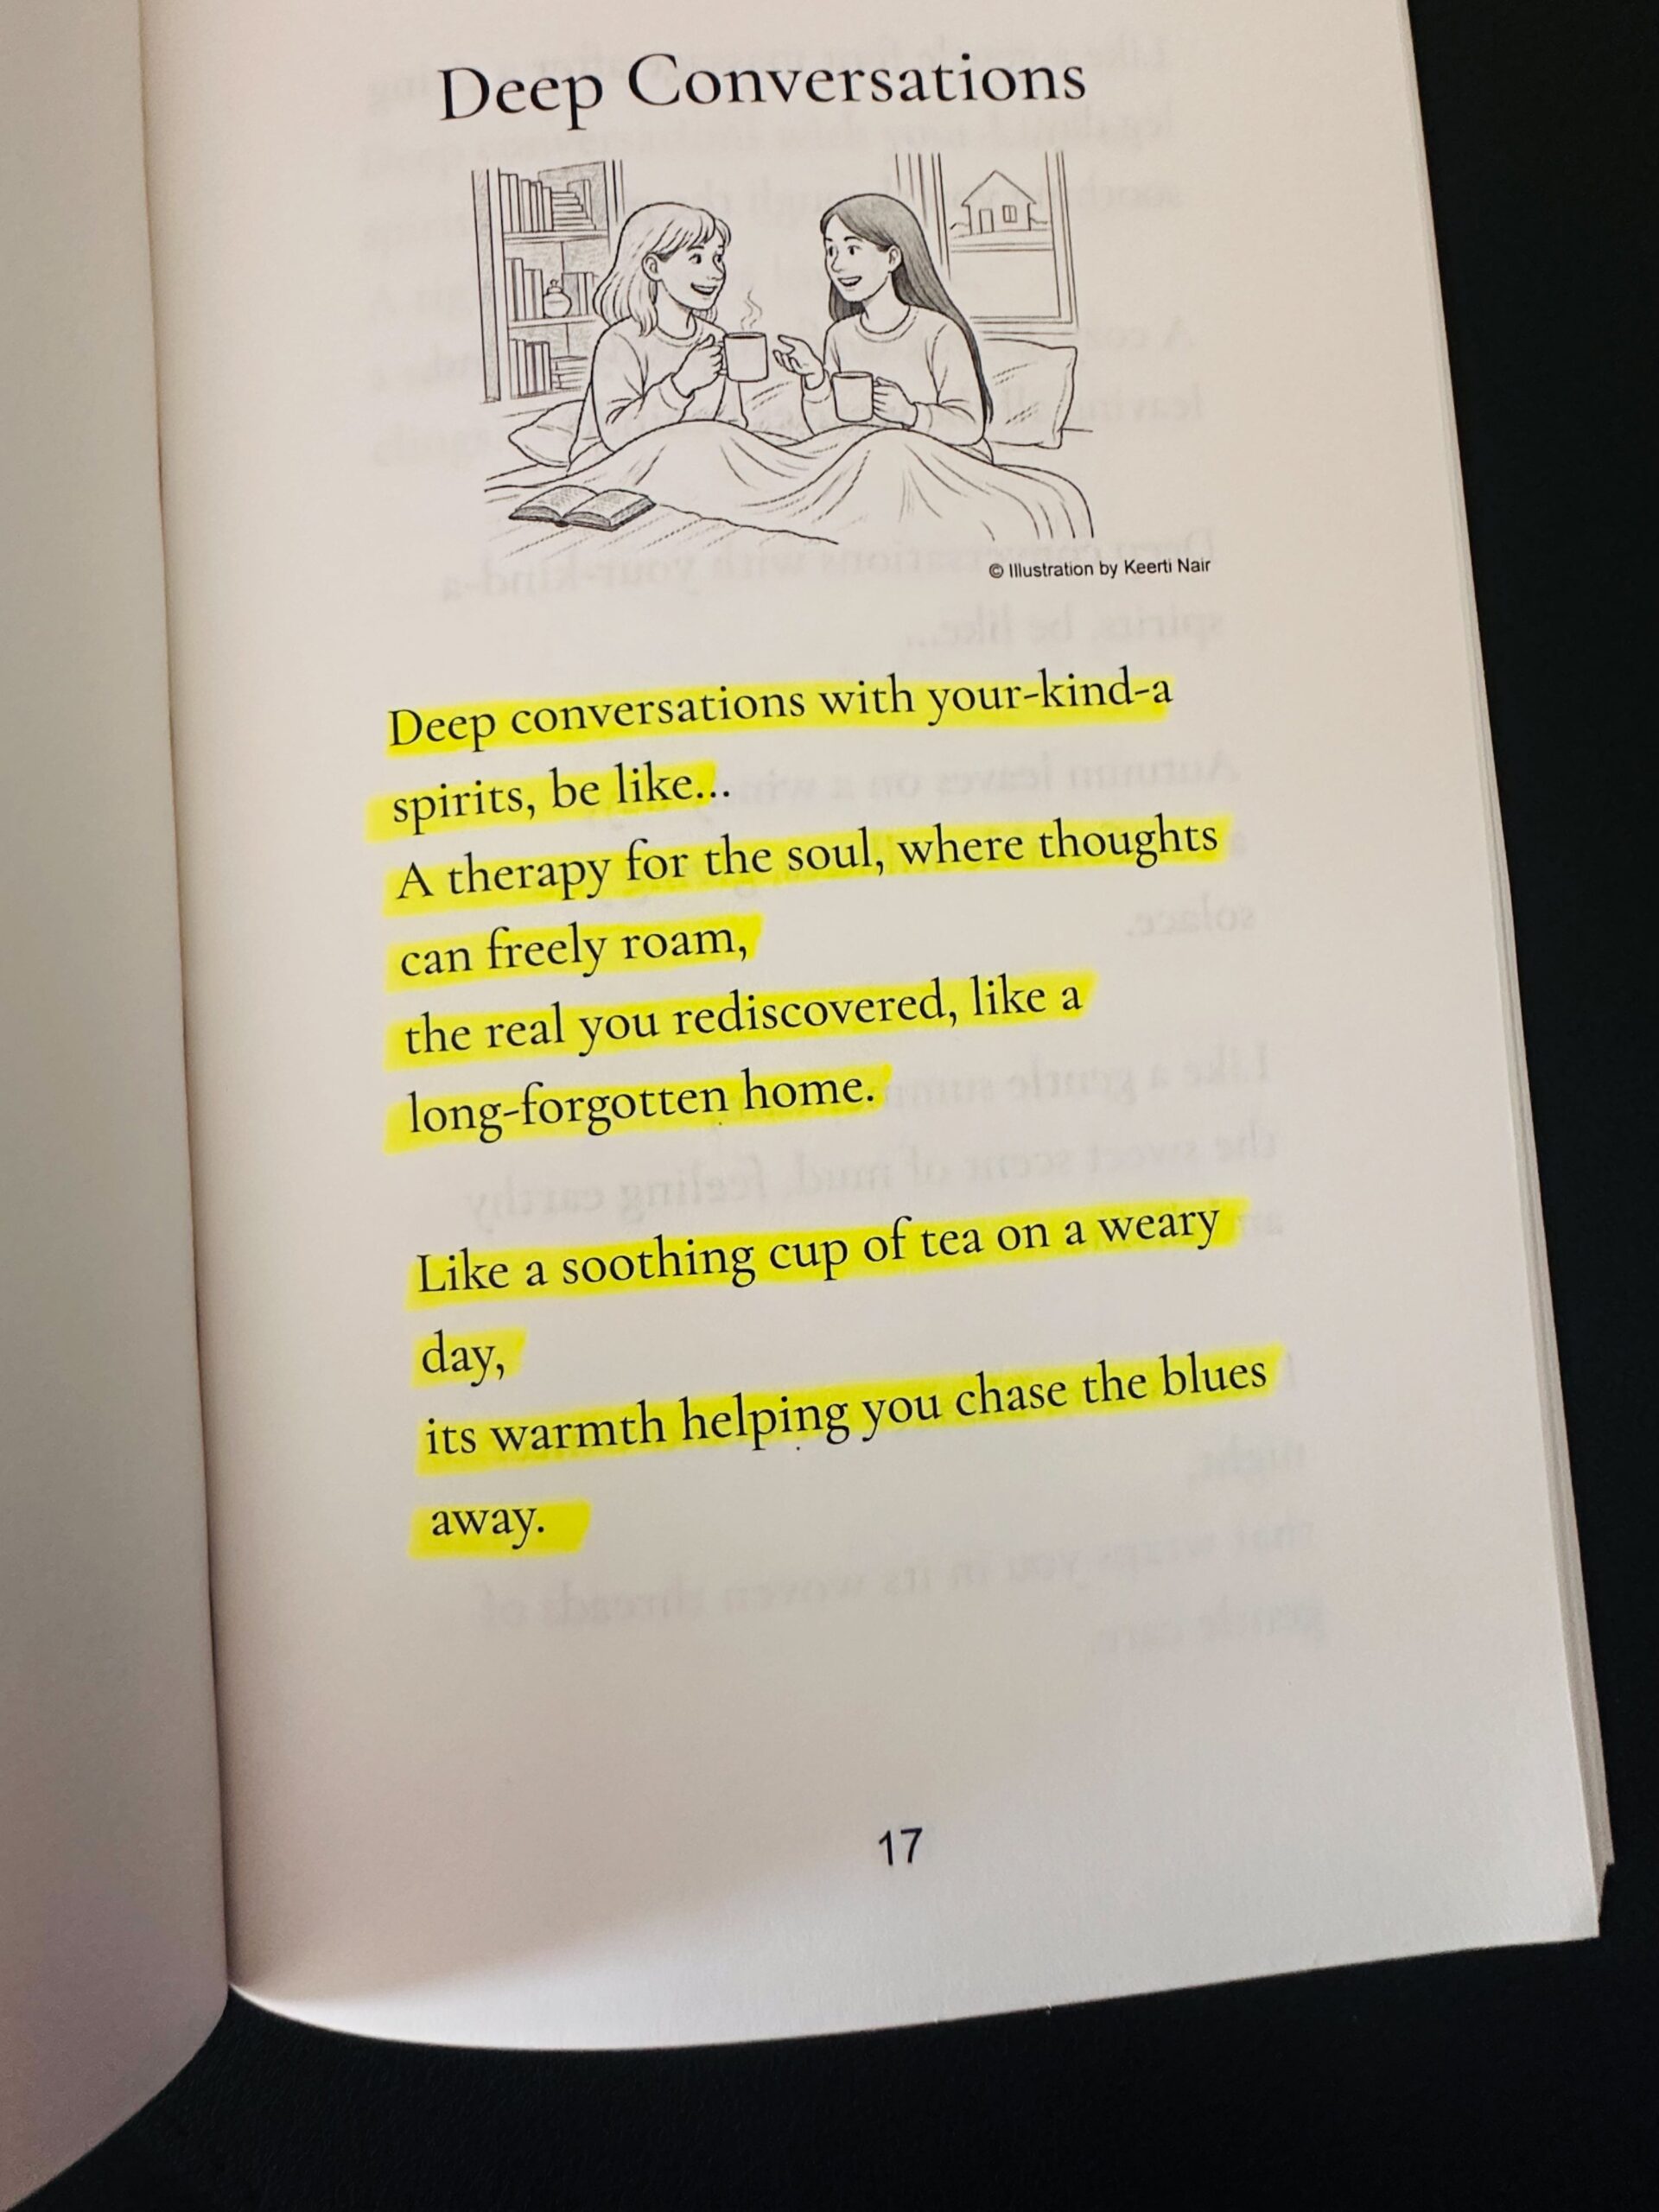 Deep Conversations
© Illustration by Keerti Nair
Deep conversations with your-kind-a
spirits, be like...
A therapy for the soul, where thoughts
can freely roam,
the real you rediscovered, like a
long-forgotten home.
Like a soothing cup of tea on a weary
day,
its warmth helping you chase the blues
away.
17